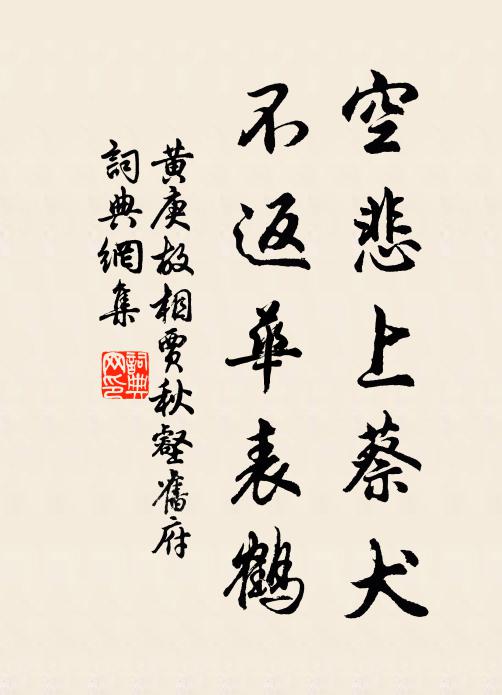 空悲上蔡犬
不返華表鶴
黄庚故相賈秋壑舊府
詞典網集
詞典
网印